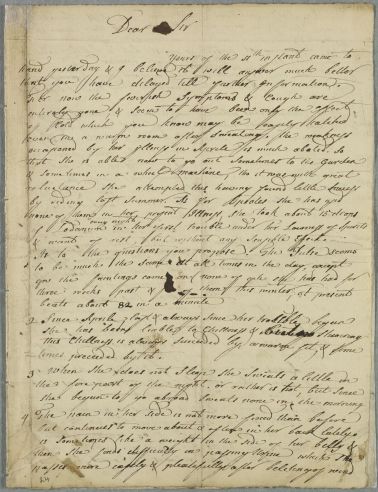 Dear Sir
Yours of the 11th instant came to
hand yesterday & I believe it will answer much better
that you have delayed till further information.
For now the feverish Symptoms & Cough are
entirely gone & seem to have been only the effect
of Cold which you know may be easily catched
even in a warm room after Sweating. The weakness
occasioned by her illness in April is much abated so
that she is able now to go out sometimes to the Garden
& sometimes in a wheel machine, tho it was with great
reluctance she attempted this having found little success
by riding last Summer. As for Opiates she has got
none of them in her present illness, she took about 15 drops
Laudanum in her great trouble under her Lowness of Spirits
& want of rest but without any sensible effect.
As to the questions you propose 1 The Pulse seems
to be much the same at all times in the day, except
when the faintings come on none of which she has had for
three weeks past & of them this winter at present
beats about 82 in a minute
2 Since April last & always since her trouble began
she has been liable to Chilness & Shivering
this Chilness is always succeeded by a warm fit, & some
=times preceded by it.
3 When she does not sleep she sweats a little in
the forepart of the night, or rather is hot, but since
she began to go abroad sweats none in the morning
4 The pain in her side is not more fixed than before
but continues to move about & often in her back Lately
is sometimes like a weight in the side of her belly &
then she finds difficulty in passing Urine which she
passes more easily & plentifully after belching of wind